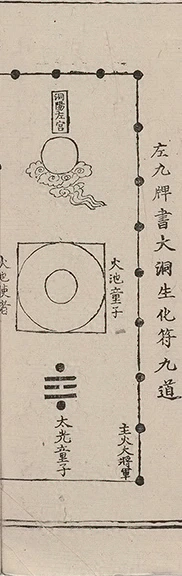 左九牌書大洞生化符九道
洞陽左宮
火池童子
火池使者
太光童子
主火大將軍